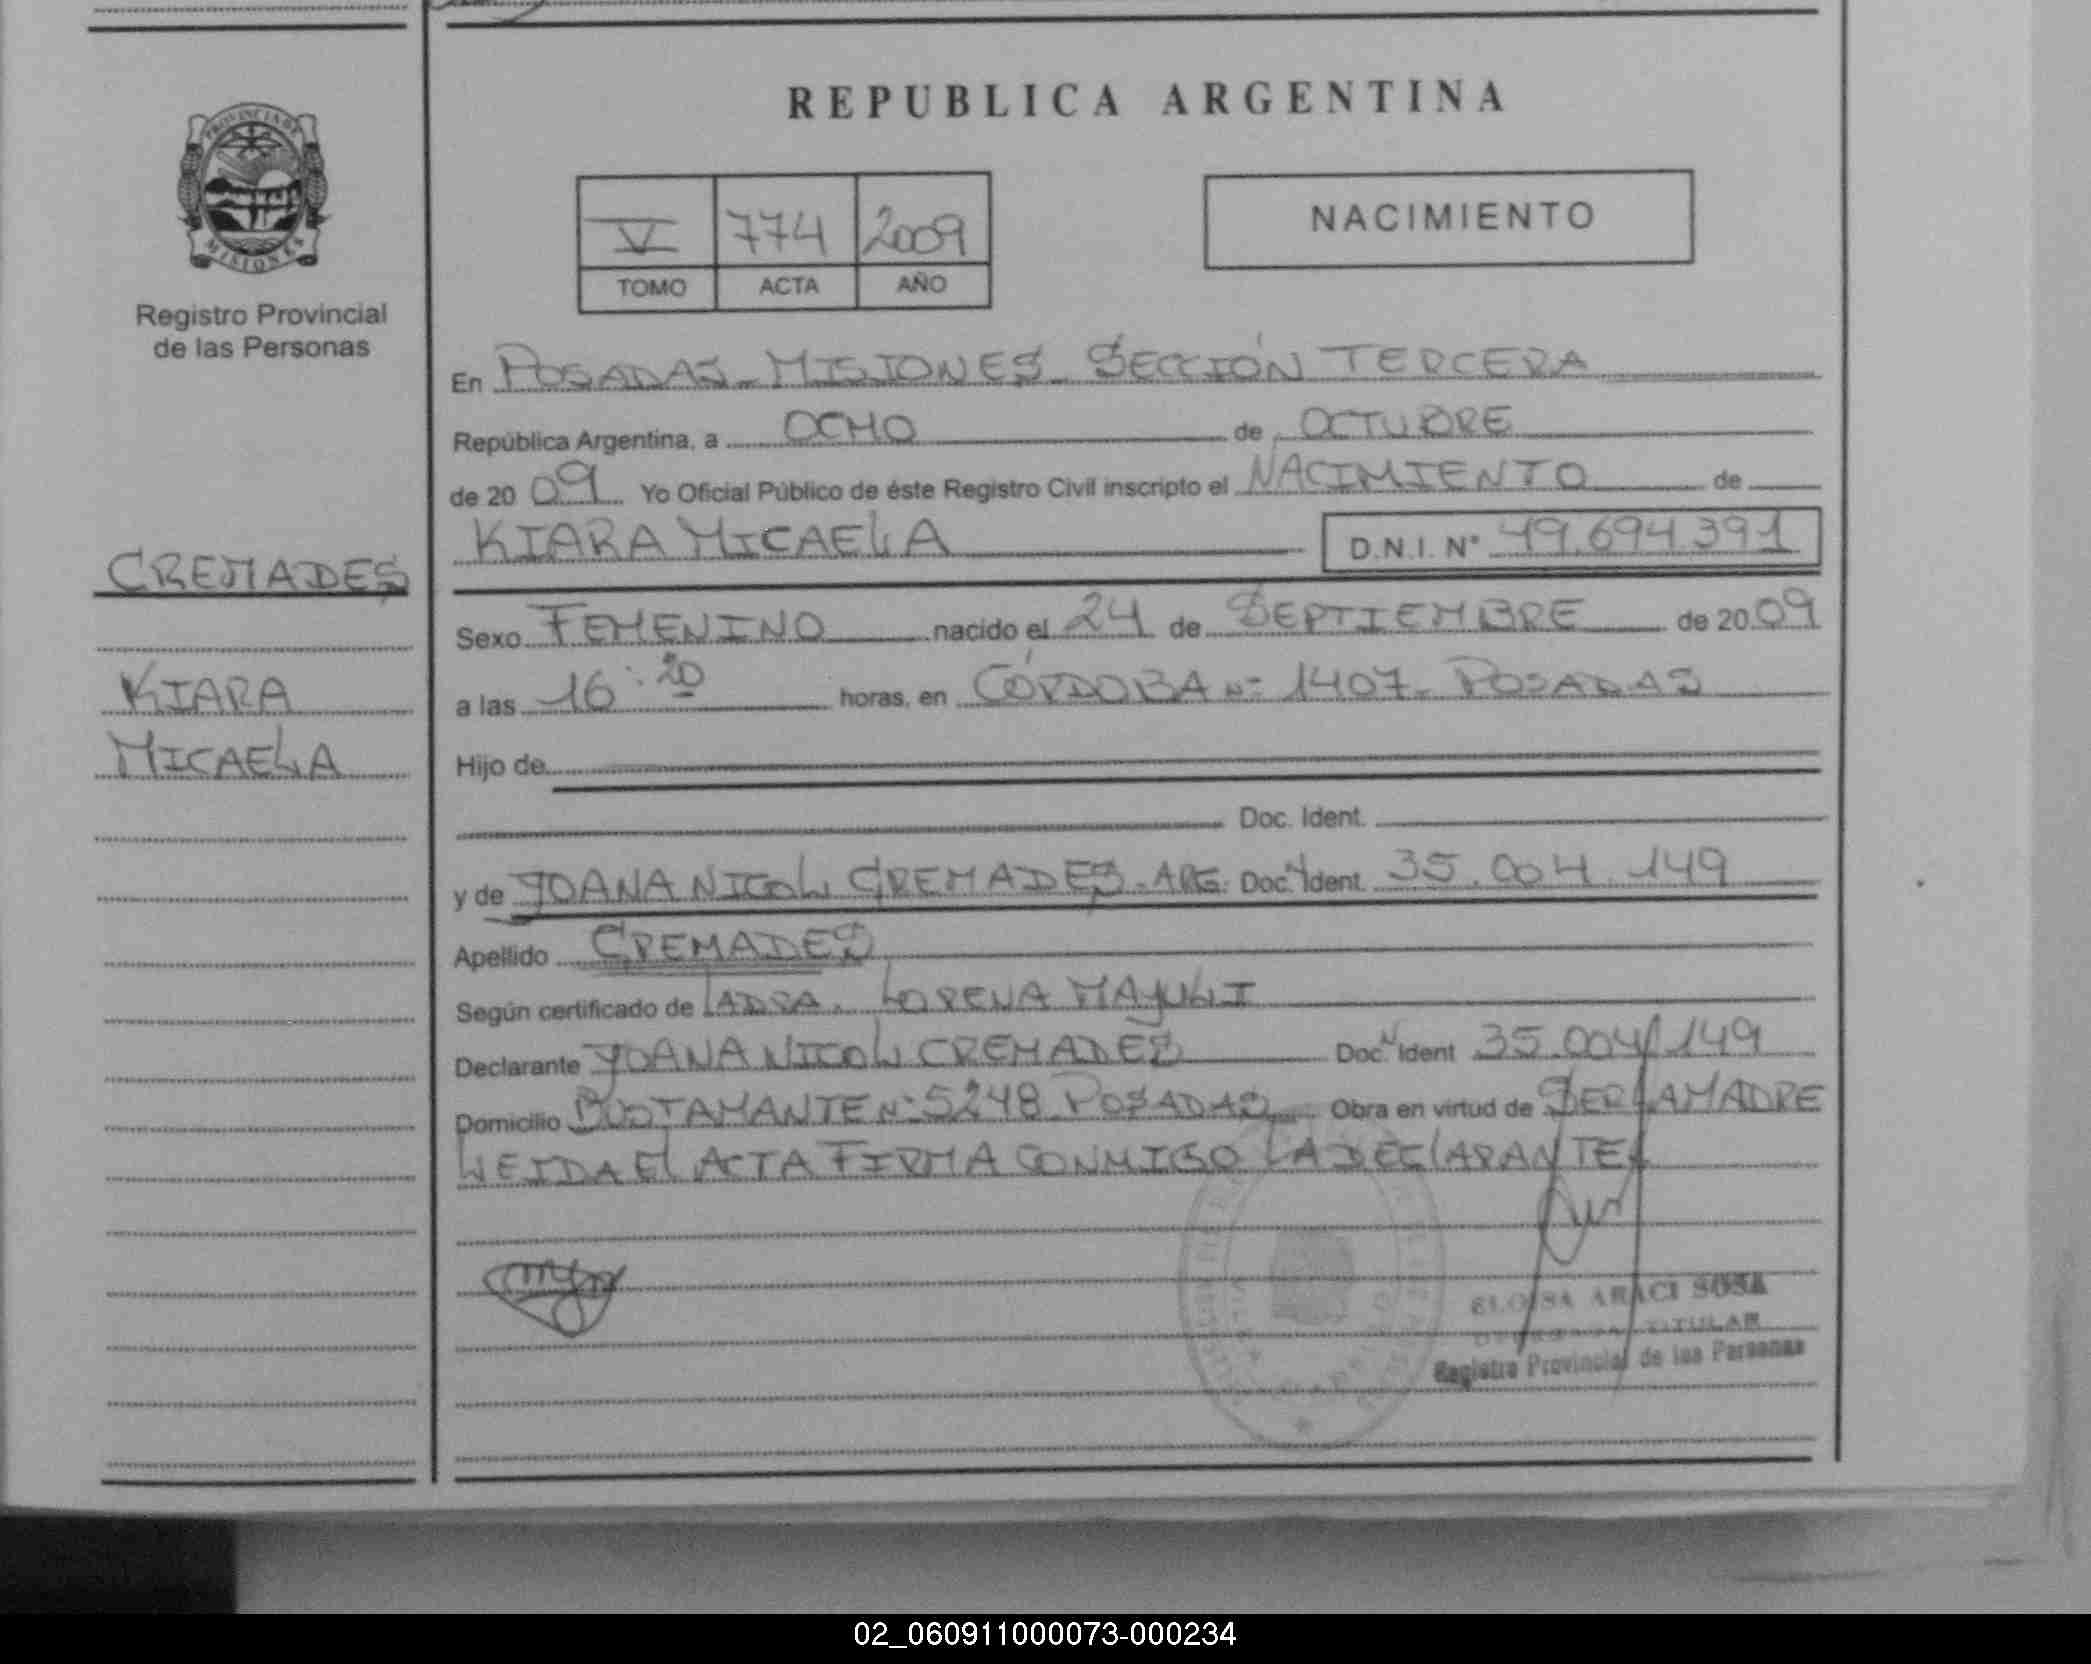 REPUBLICA ARGENTINA
PROVINCIA DE
MISIONES
Registro Provincial
de las Personas
V 774 2009
TOMO ACTA AÑO
NACIMIENTO
En POSADAS - MISIONES - SECCIÓN TERCERA
República Argentina, a OCHO de OCTUBRE
de 2009 Yo Oficial Público de éste Registro Civil inscripto el NACIMIENTO de
KIARA MICAELA D.N.I. N° 49.694.391
CREMADES
KIARA
MICAELA
Sexo FEMENINO nacido el 24 de SEPTIEMBRE de 2009
a las 16:20 horas, en CÓRDOBA N° 1407 - POSADAS
Hijo de
Doc. Ident.
y de YOANA NICOL CREMADES - ARG. Doc. Ident. 35.004.149
Apellido CREMADES
Según certificado de LORENA MAYULI
Declarante YOANA NICOL CREMADES Doc. Ident 35.004.149
Domicilio BUSTAMANTE N° 5248 - POSADAS Obra en virtud de SER LA MADRE
LEIDA EL ACTA FIRMA CONMIGO LA DECLARANTE
ELOISA ARACI SOSA
TITULAR
Registro Provincial de las Personas
02_060911000073-000234